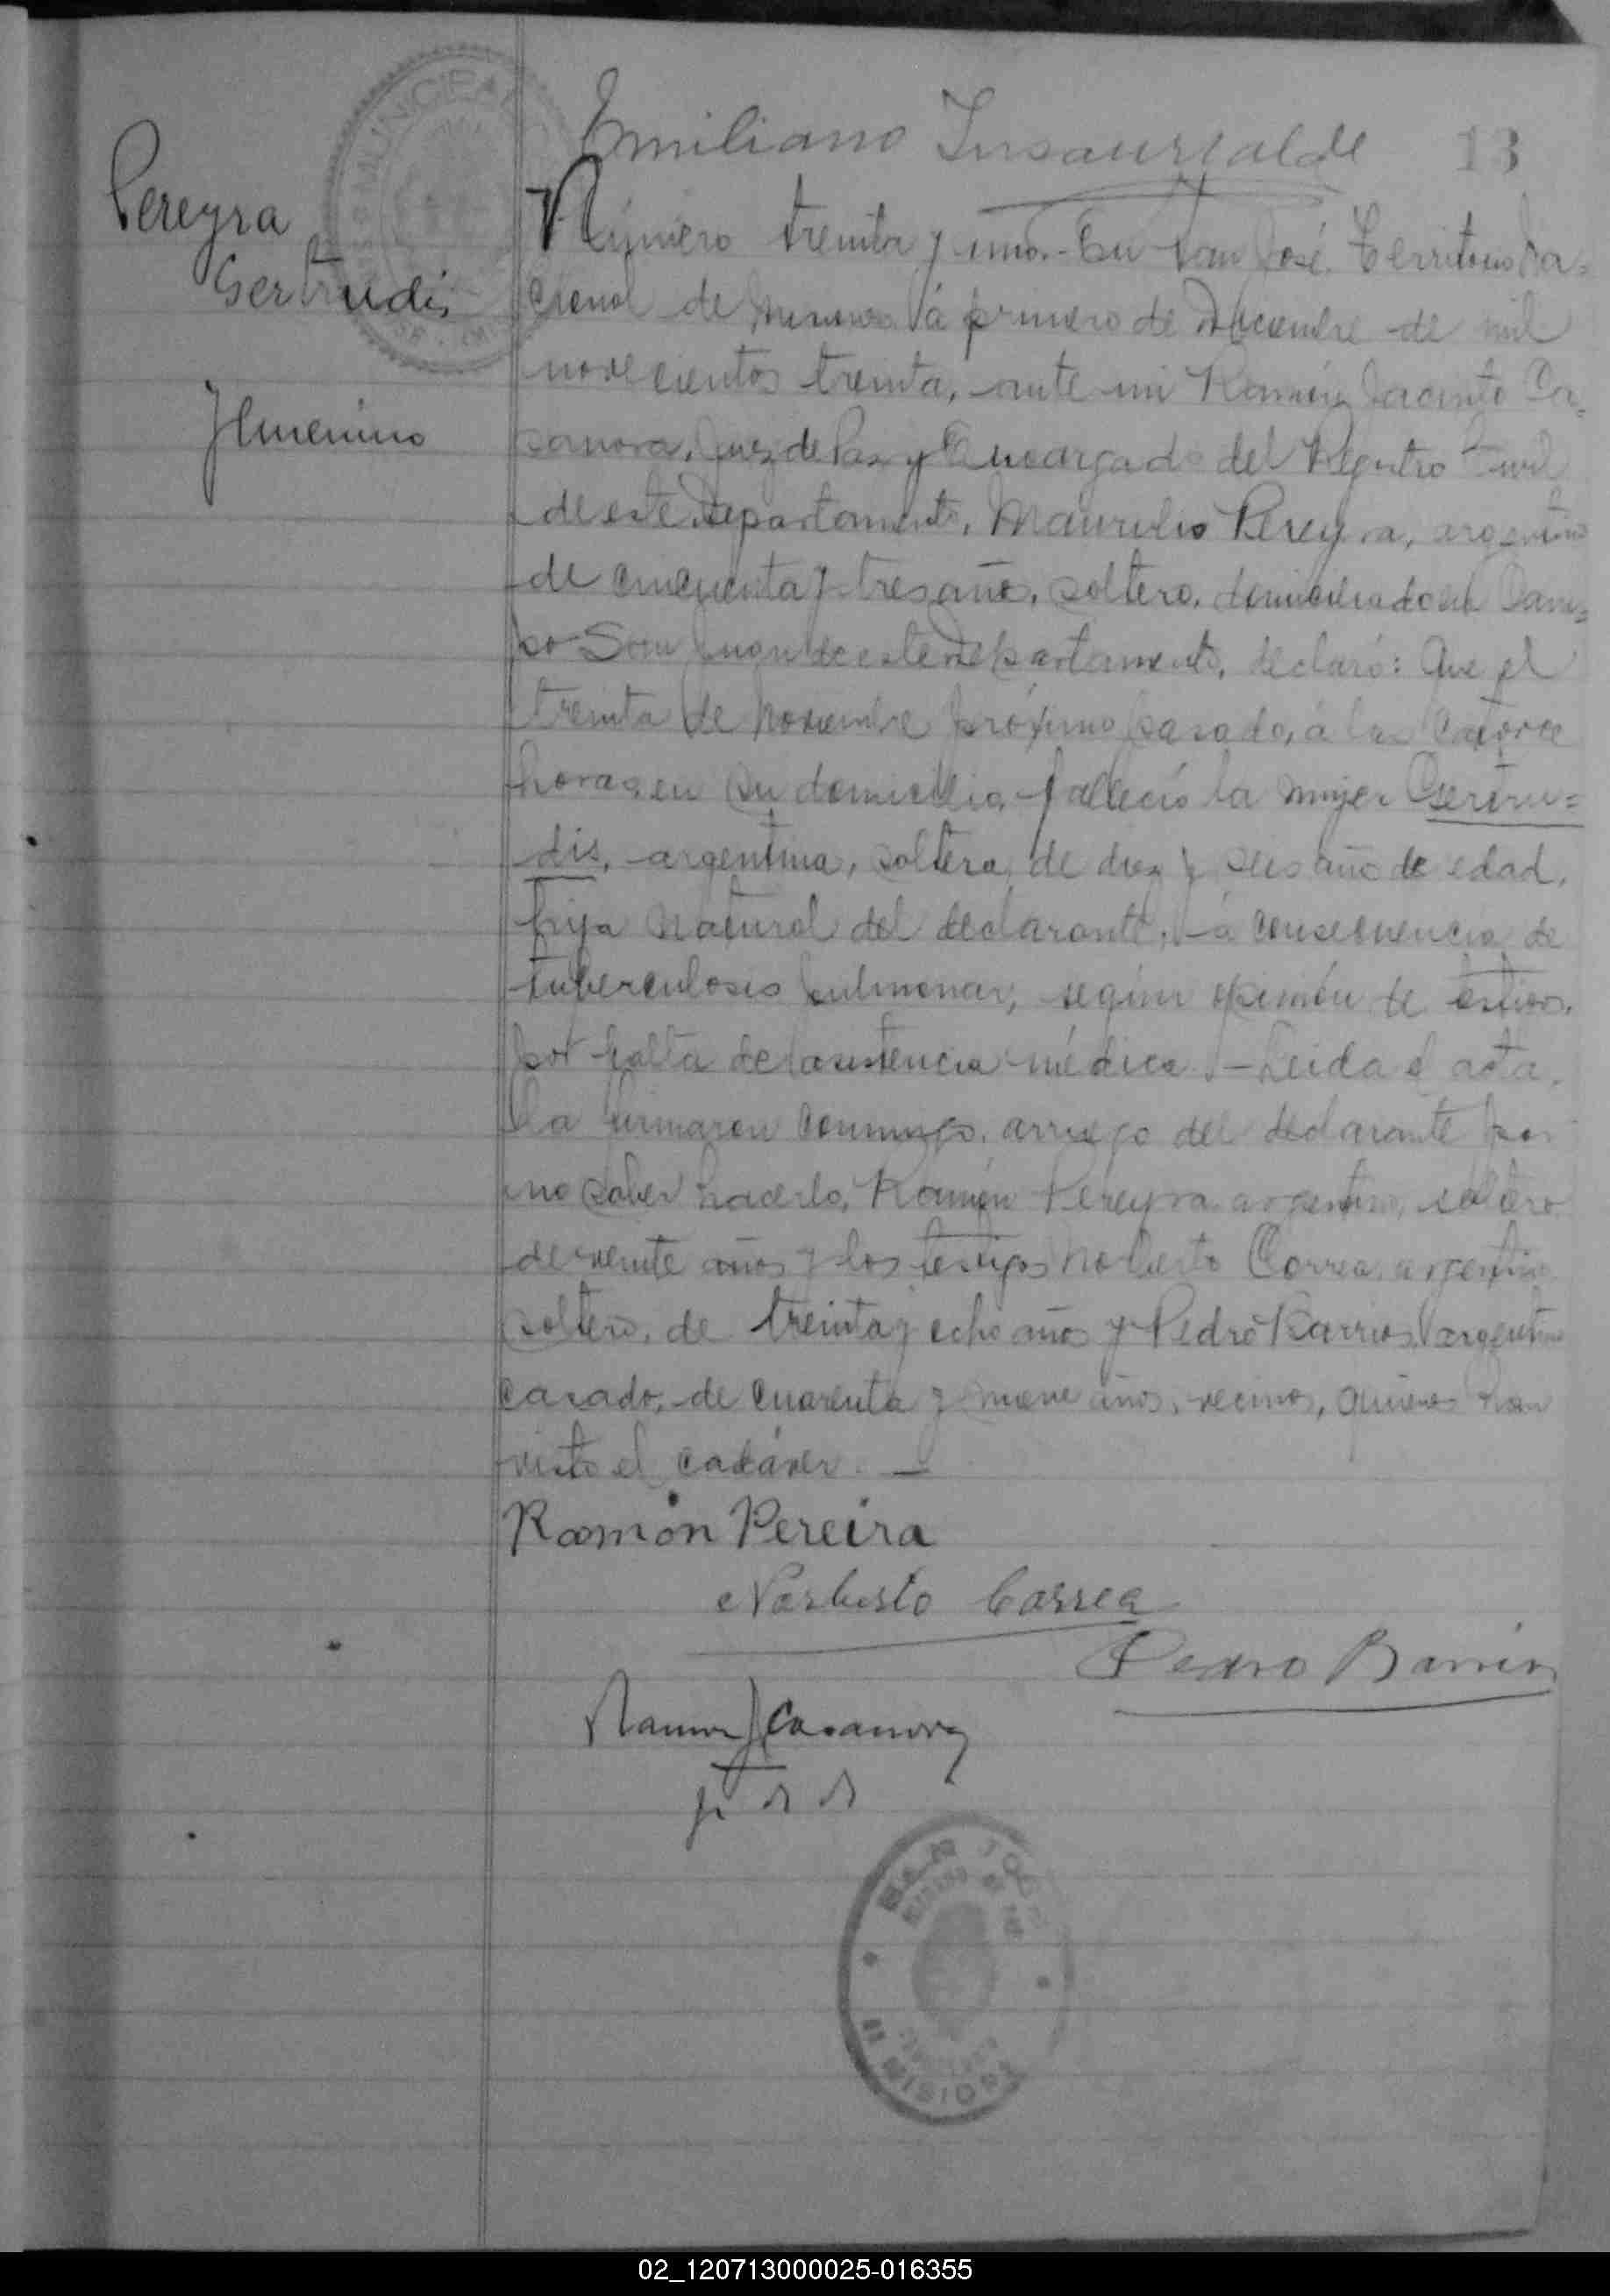 Emiliano Insaurralde 13
Pereyra
Gertrudis
Femenino
MUNICIPAL
Número treinta y uno.- En San José, Territorio Na=
cional de Misiones á primero de Diciembre de mil
novecientos treinta, ante mi Ramón Jacinto Ca=
sanova, Juez de Paz y Encargado del Registro Civil
de este Departamento, Maurilio Pereyra, argentino
de cincuenta y tres años, soltero, domiciliado en Cam=
po San Juan de este Departamento, declaró: Que el
treinta de Noviembre próximo pasado, á las catorce
horas, en su domicilio, falleció la mujer Gertru=
dis, argentina, soltera, de diez y seis años de edad,
hija natural del declarante, á consecuencia de
tuberculosis pulmonar, según opinión de
por falta de asistencia médica.- Leida el acta,
la firmaron conmigo, arruego del declarante por
no saber hacerlo, Ramón Pereyra, argentino, soltero
de veinte años y los testigos Norberto Correa, argentino
soltero, de treinta y ocho años y Pedro Barrios, argentino
casado, de cuarenta y nueve años, vecinos, quienes han
visto el cadáver.-
Ramón Pereira
Norberto Correa
Pedro Barrios
Ramon J Casanova
SAN JOSE
JUZGADO DE PAZ
MISIONES
02_120713000025-016355